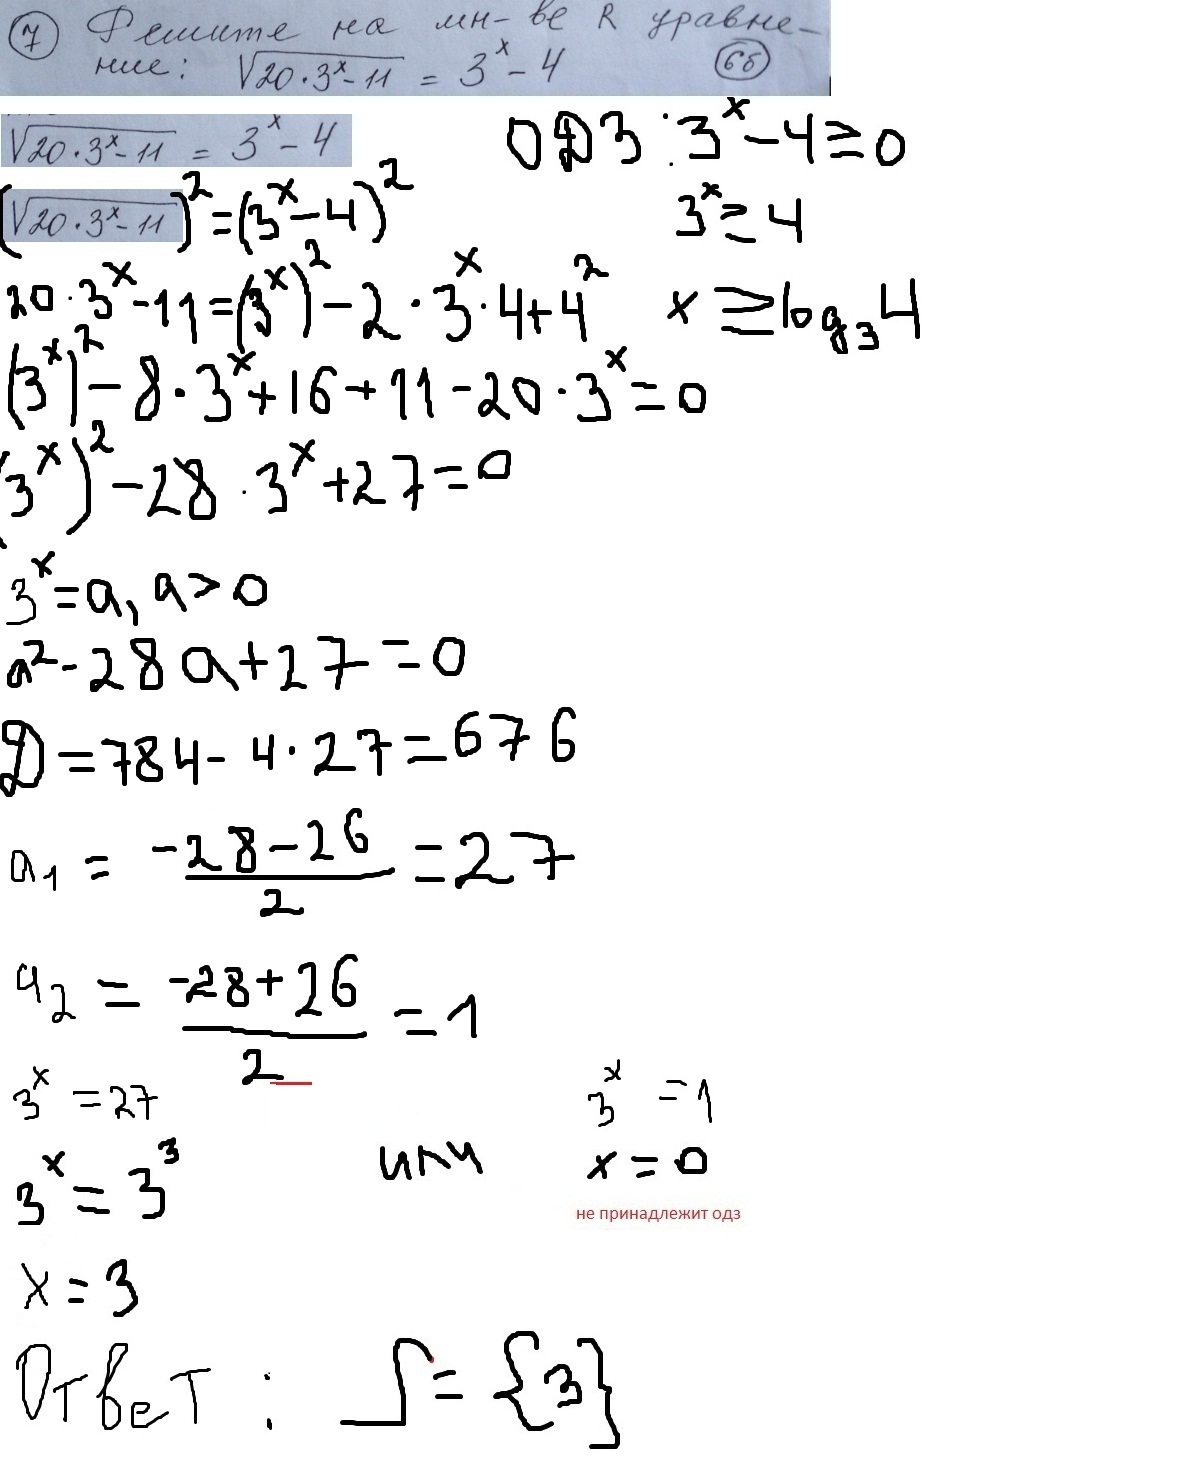 7 Решите на мн-ве R уравне-
ние: √(20·3^x-11) = 3^x-4 (6б)
√(20·3^x-11) = 3^x-4 ОДЗ: 3^x-4≥0
(√(20·3^x-11))^2=(3^x-4)^2 3^x≥4
20·3^x-11=(3^x)^2-2·3^x·4+4^2 x≥log_3 4
(3^x)^2-8·3^x+16+11-20·3^x=0
(3^x)^2-28·3^x+27=0
3^x=a, a>0
a^2-28a+27=0
D=784-4·27=676
a_1 = (-28-26)/2 = 27
a_2 = (-28+26)/2 = 1
3^x=27 3^x=1
3^x=3^3 или x=0
не принадлежит одз
x=3
Ответ: S={3}